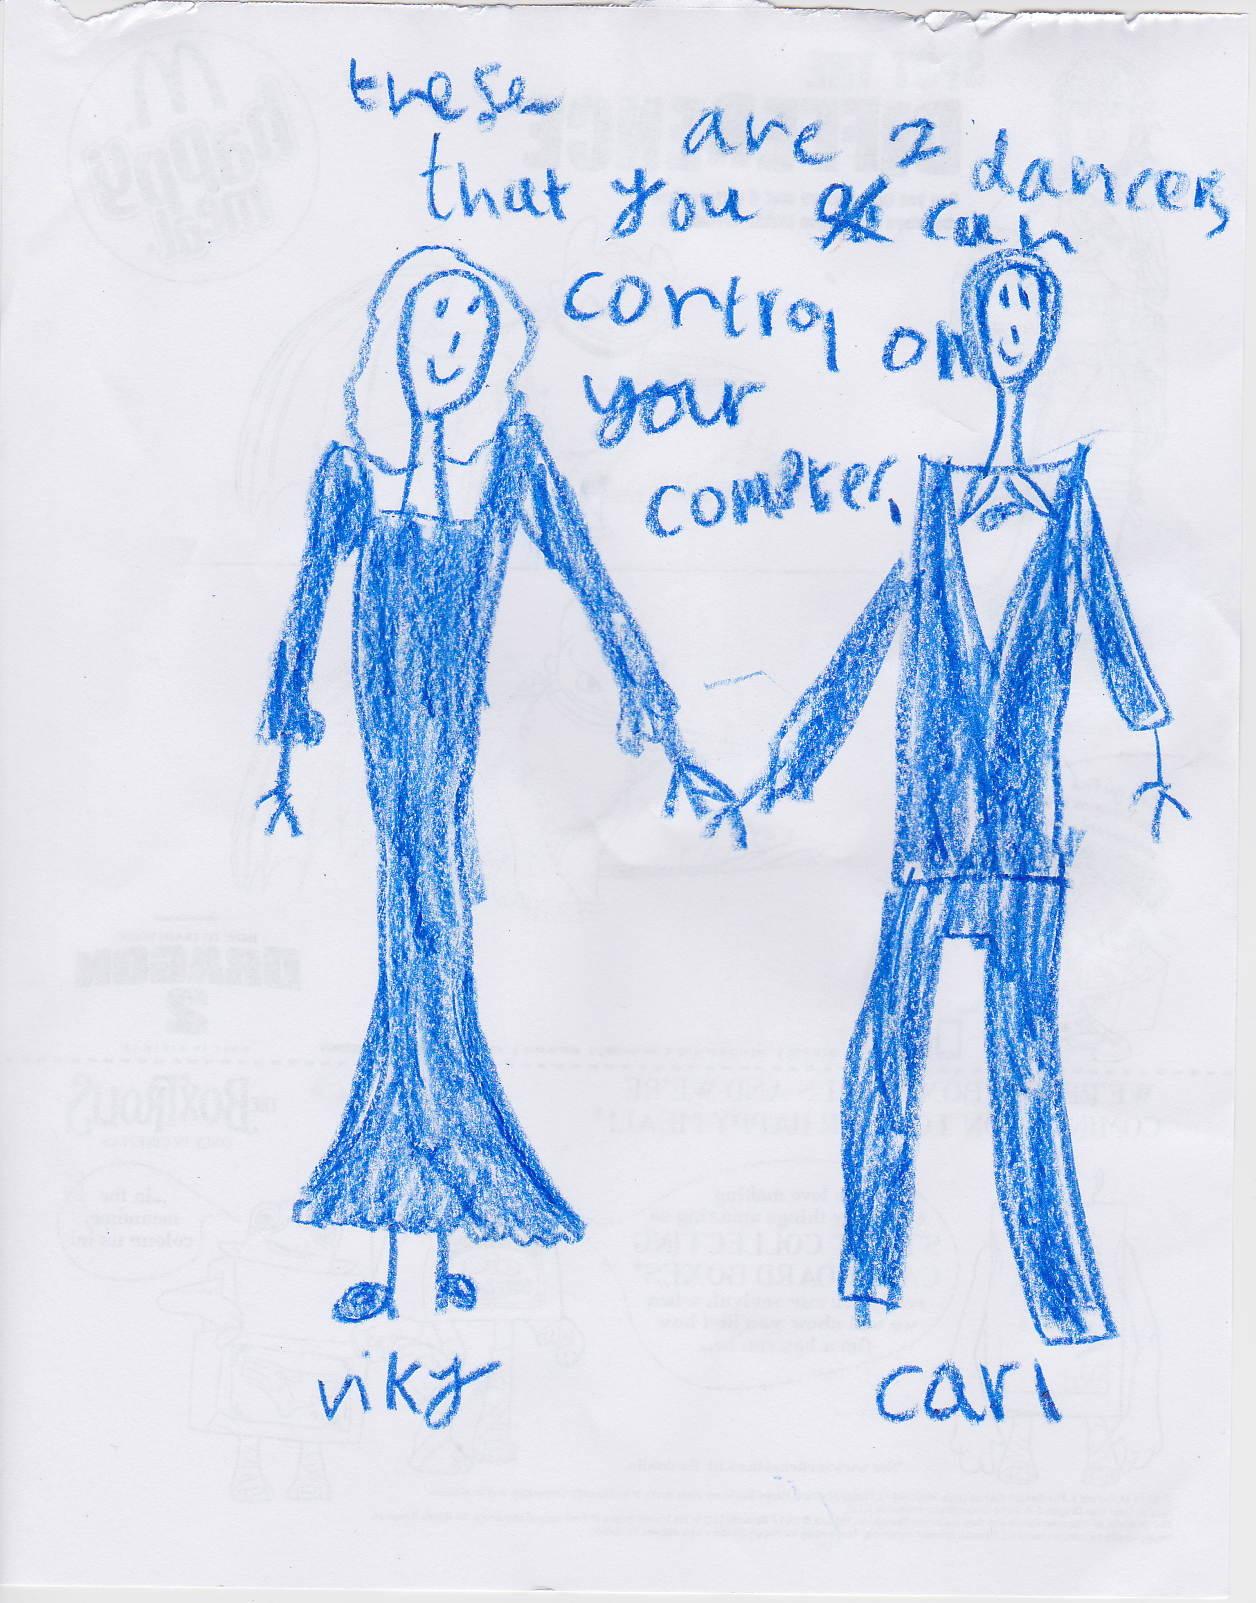 these are 2 dancers
that you can
control on
your
compter,
viky
carl